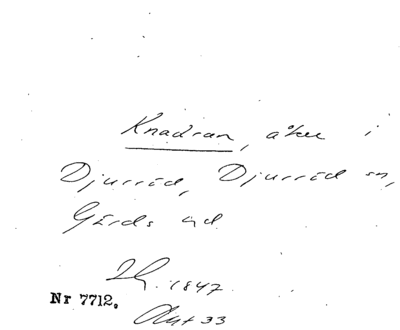 Knadran, åker i
Djurröd, Djurröd sn,
Gärds hd
1847
Nr 7712.
33